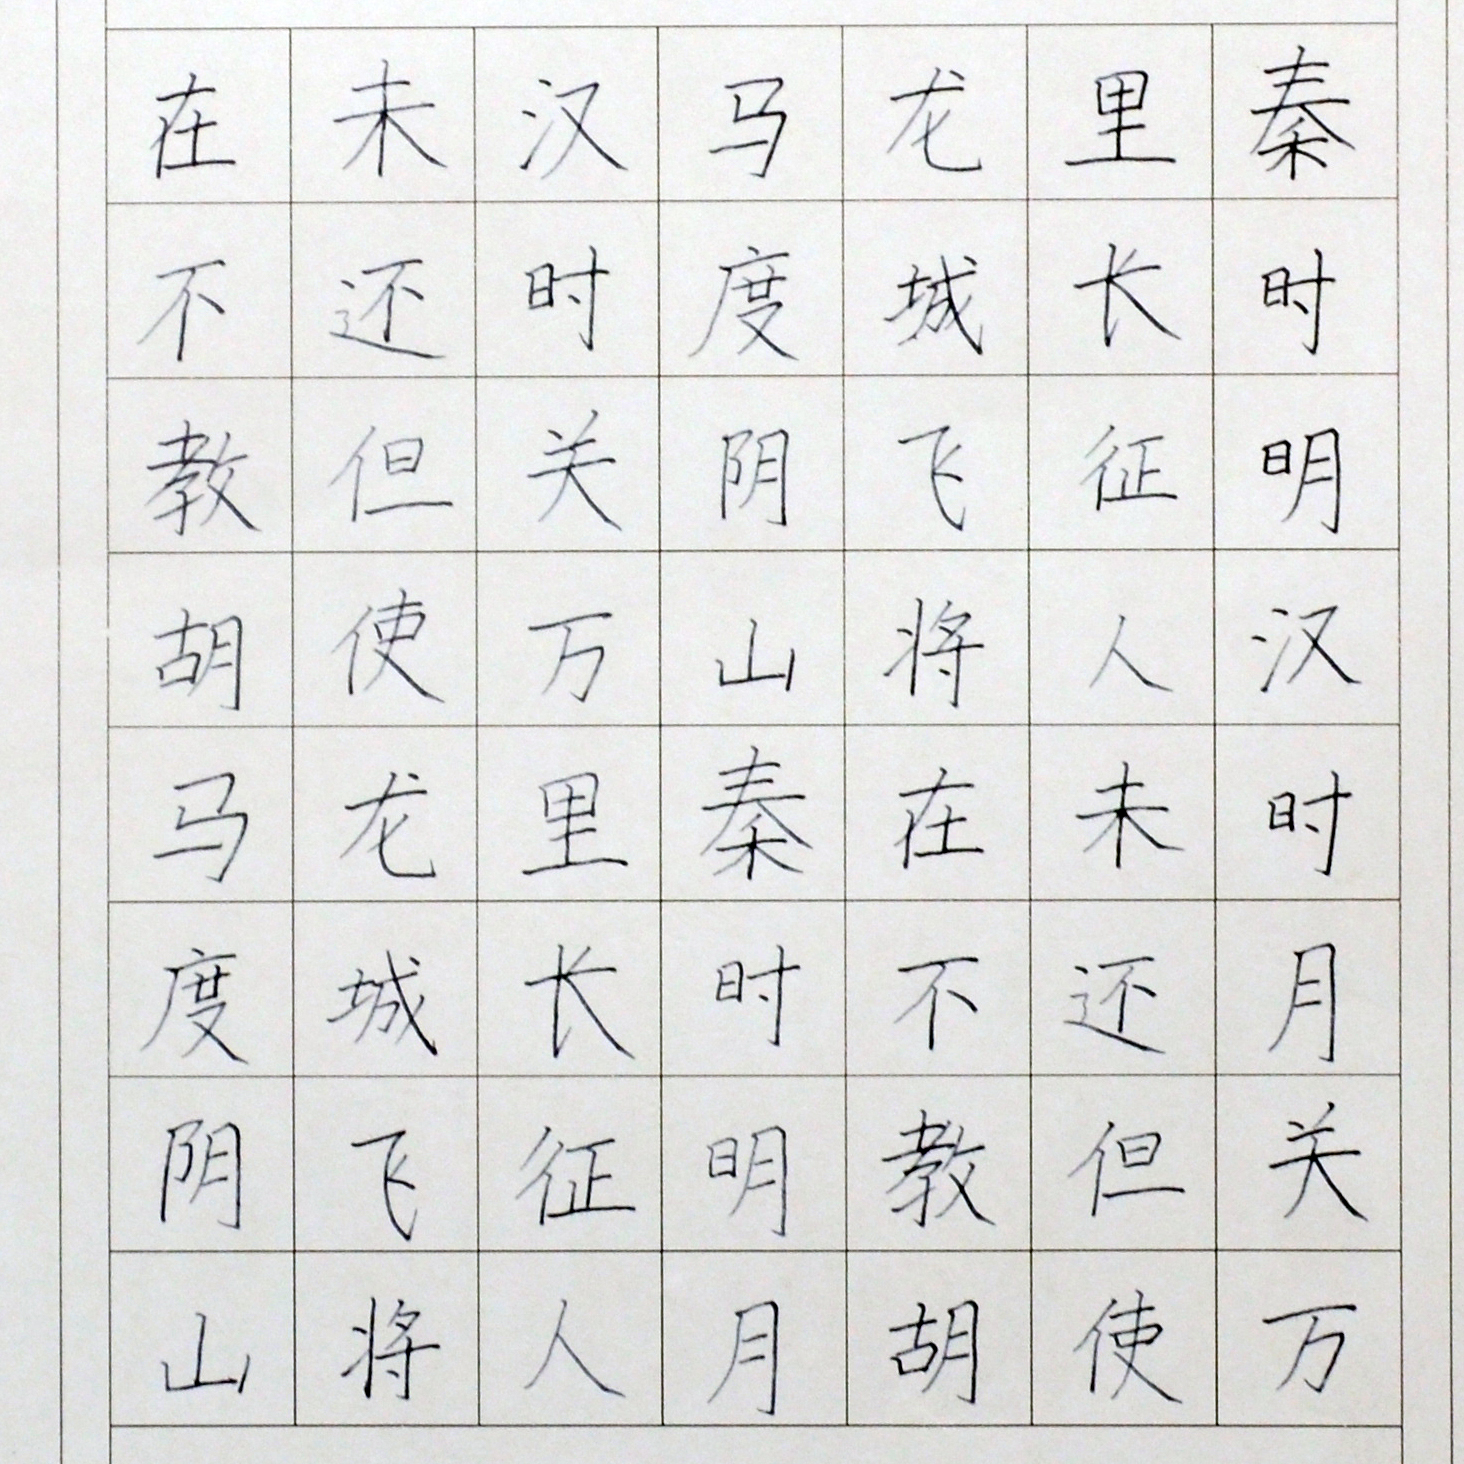 秦时明汉时月关万
里长征人未还但使
龙城飞将在不教胡
马度阴山秦时明月
汉时关万里长征人
未还但使龙城飞将
在不教胡马度阴山